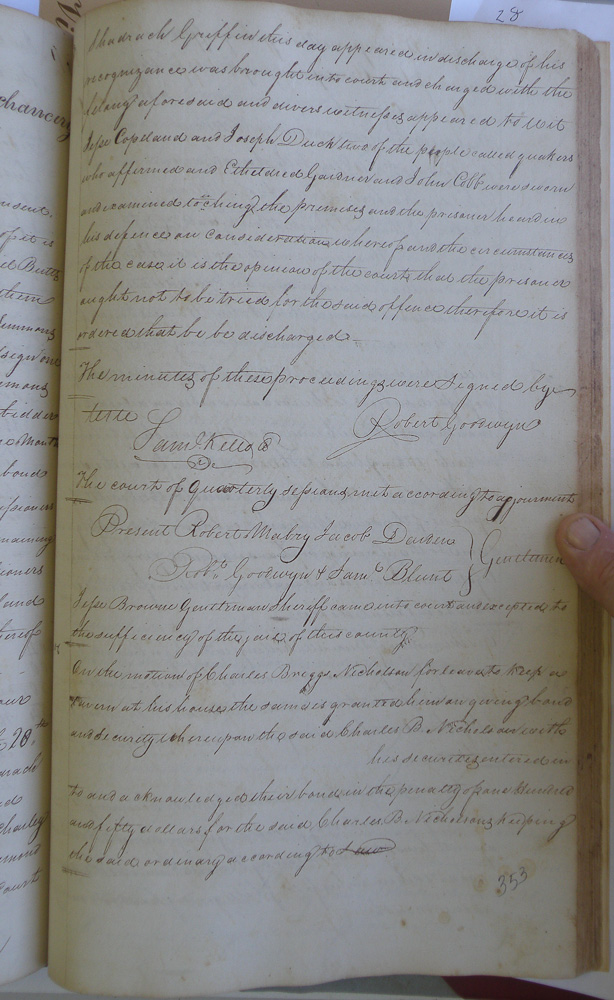 28
Shadrach Griffin this day appeared in discharge of his
recognizance was brought into court and charged with the
felony aforesaid and divers witnesses appeared to wit
Jesse Copeland and Joseph Duck two of the people called quakers
who affirmed and Etheldred Gardner and John Cobb were sworn
and examined touching the premises and the prisoner heard in
his defence on consideration whereof and the circumstances
of the case it is the opinion of the court that the prisoner
ought not to be tried for the said offence therefore it is
ordered that he be discharged
The minutes of these proceedings were signed by
Robert Goodwyn
Saml Kello
The court of quarterly sessions met according to ajourment
Present Robert Mabry Jacob Darden
Robt. Goodwyn & Saml Blunt
Gentlemen
Jesse Browne Gentleman Sheriff came into court and excepted to
the sufficiency of the gaol of this county
On the motion of Charles Briggs Nicholson for leave to keep a
tavern at his house the same is granted him on giving bond
and security whereupon the said Charles B. Nicholson with
his securities entered in
to and acknowledged their bond in the penalty of one Hundred
and fifty dollars for the said Charles B. Nicholsons keeping
the said ordinary according to Law
353
chancery
of it is
28
bond
Court